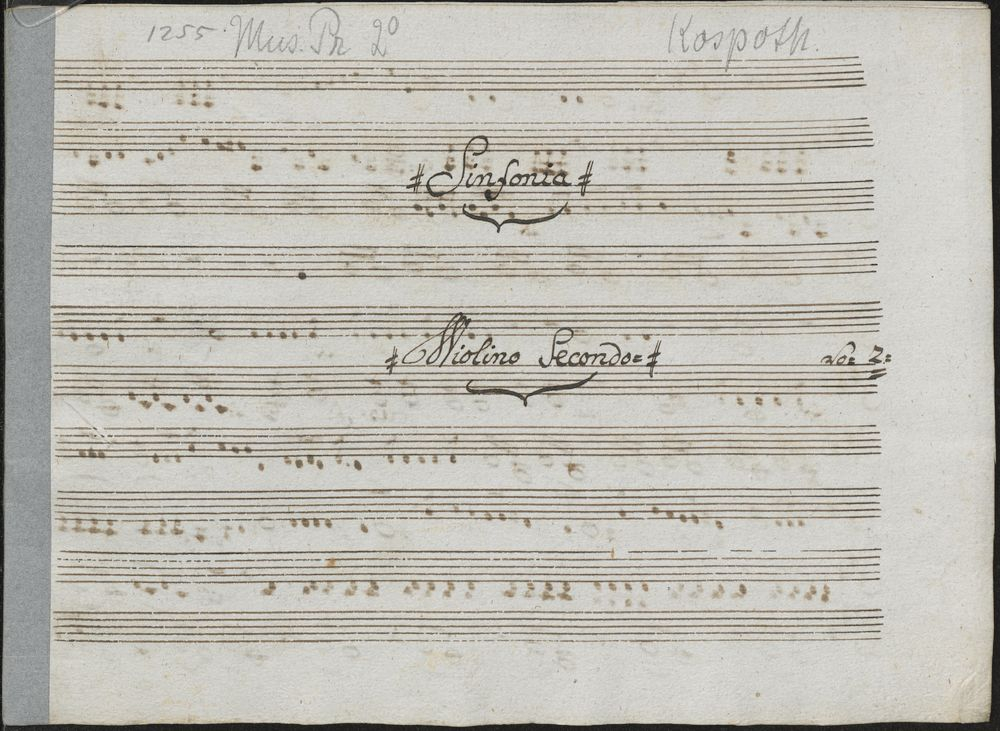 1255. Mus. Pr 2⁰ Kospoth.
Sinfonia
Violino Secondo=
No= 2=